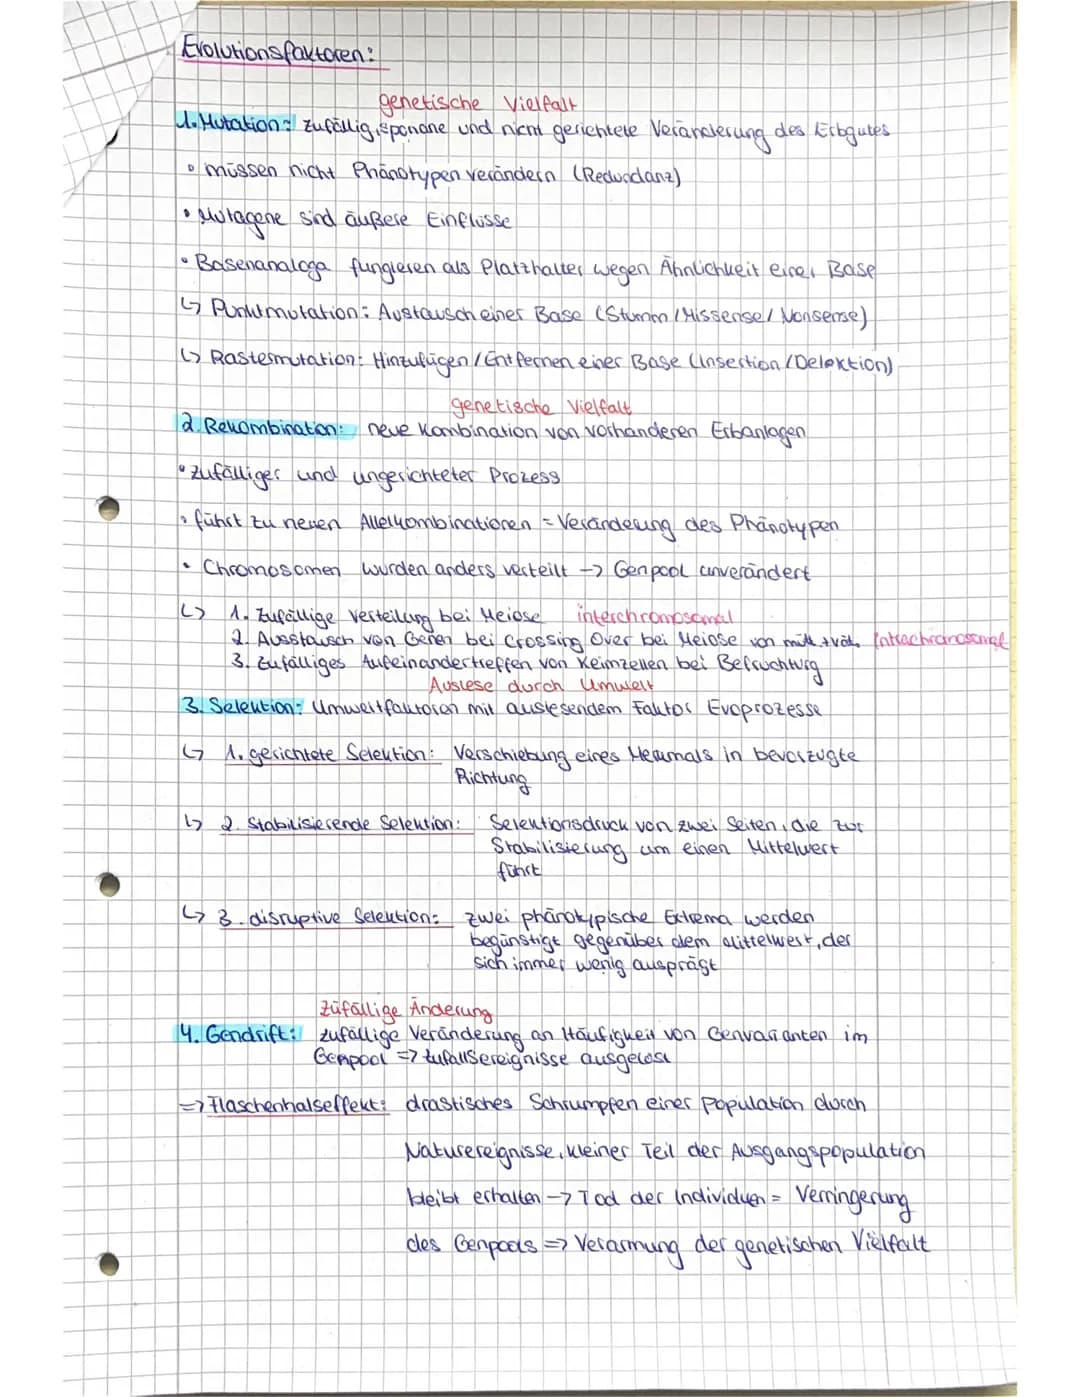 Evolutionsfaktoren:
genetische Vielfalt
1. Mutation: zufällig, sponane und nicht gerichtete Veränderung des Erbgutes
• müssen nicht Phänotypen verändern (Redundanz)
• Mutagene sind äußere Einflüsse
• Basenanaloga fungieren als Platzhalter wegen Ähnlichkeit einer Base
↳ Punktmutation: Austausch einer Base (Stumm/Missense/Nonsense)
↳ Rastermutation: Hinzufügen/Entfernen einer Base (Insertion/Delektion)
genetische Vielfalt
2. Rekombination: neue Kombination von vorhanderen Erbanlagen
• zufälliger und ungerichteter Prozess
• führt zu neuen Allelkombinationen = Veränderung des Phänotypen
• Chromosomen wurden anders verteilt -> Genpool unverändert
↳ 1. Zufällige Verteilung bei Meiose interchromosomal
2. Ausstausch von Genen bei Crossing Over bei Meiose von mütt. + vät. Intrachromosomal
3. zufälliges Aufeinandertreffen von Keimzellen bei Befruchtung
Auslese durch Umwelt
3. Selektion: Umweltfaktoren mit auslesendem Faktor Evoprozesse
↳ 1. gerichtete Selektion: Verschiebung eines Merkmals in bevorzugte
Richtung
↳ 2. Stabilisierende Selektion: Selektionsdruck von zwei Seiten, die zur
Stabilisierung um einen Mittelwert
führt
↳ 3. disruptive Selektion: zwei phänotypische Extrema werden
begünstigt gegenüber dem Mittelwert, der
sich immer wenig ausprägt
Züfällige Änderung
4. Gendrift: zufällige Veränderung an Häufigkeit von Genvarianten im
Genpool => zufallsereignisse ausgelöst
=> Flaschenhalseffekt: drastisches Schrumpfen einer Population durch
Naturereignisse, kleiner Teil der Ausgangspopulation
bleibt erhalten -> Tod der Individuen = Verringerung
des Genpools => Verarmung der genetischen Vielfalt